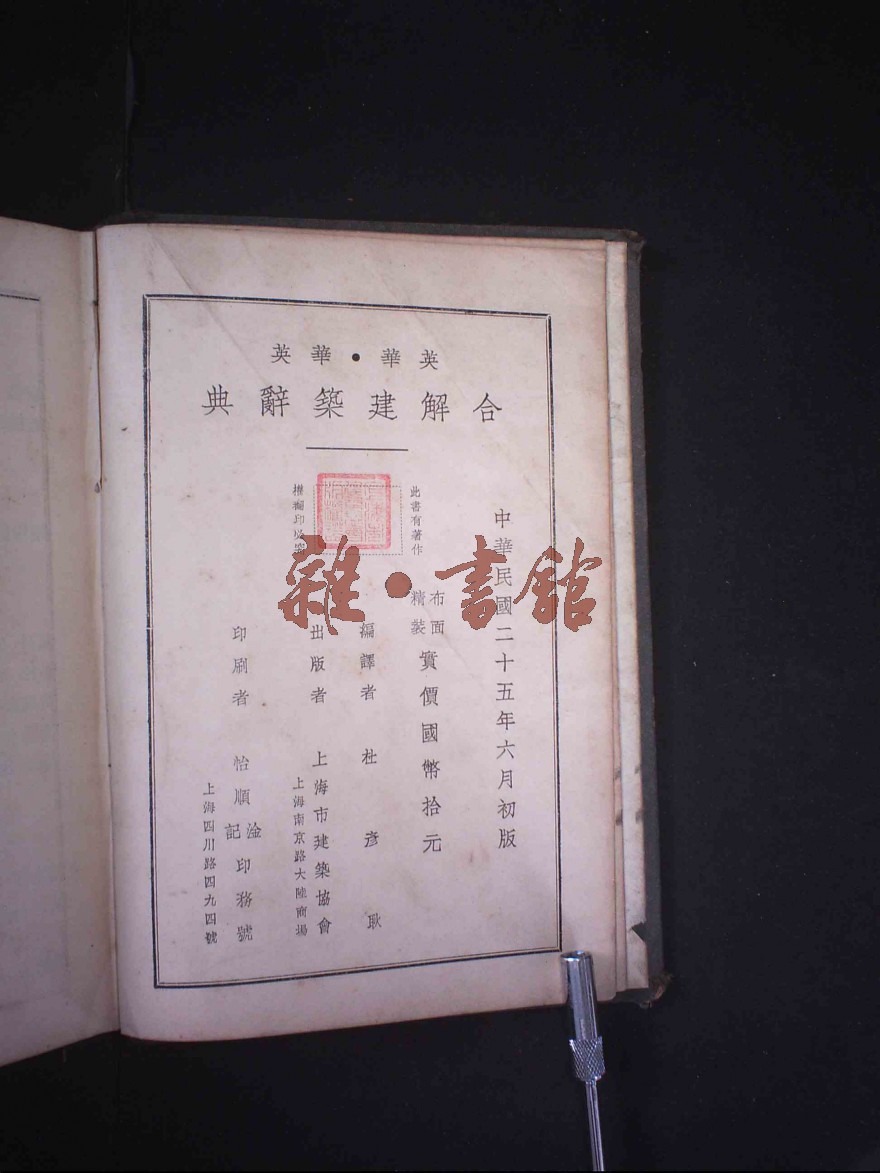 英華・華英
合解建築辭典
中華民國二十五年六月初版
布面精裝 實價國幣拾元
此書有著作
權翻印必究
編譯者 杜彥耿
出版者 上海市建築協會
上海南京路大陸商場
印刷者 怡順淦記印務號
上海四川路四九四號
雜・書館